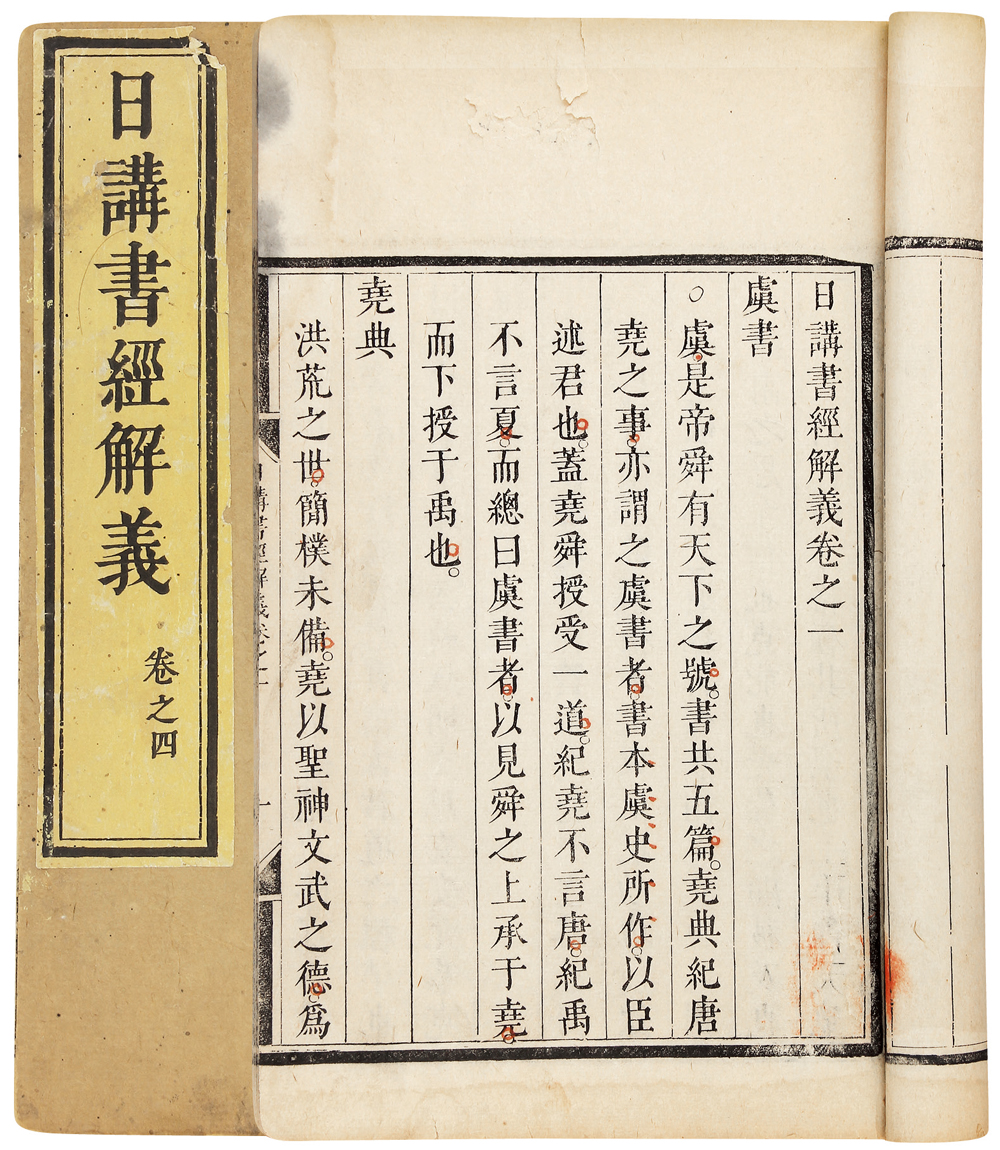 日講書經解義
卷之四
日講書經解義卷之一
虞書
○虞是帝舜有天下之號。書共五篇。堯典紀唐
堯之事。亦謂之虞書者。書本虞史所作。以臣
述君也。蓋堯舜授受一道。紀堯不言唐。紀禹
不言夏。而總曰虞書者。以見舜之上承于堯。
而下授于禹也。
堯典
洪荒之世。簡樸未備。堯以聖神文武之德。為
日講書經解義卷之一
一